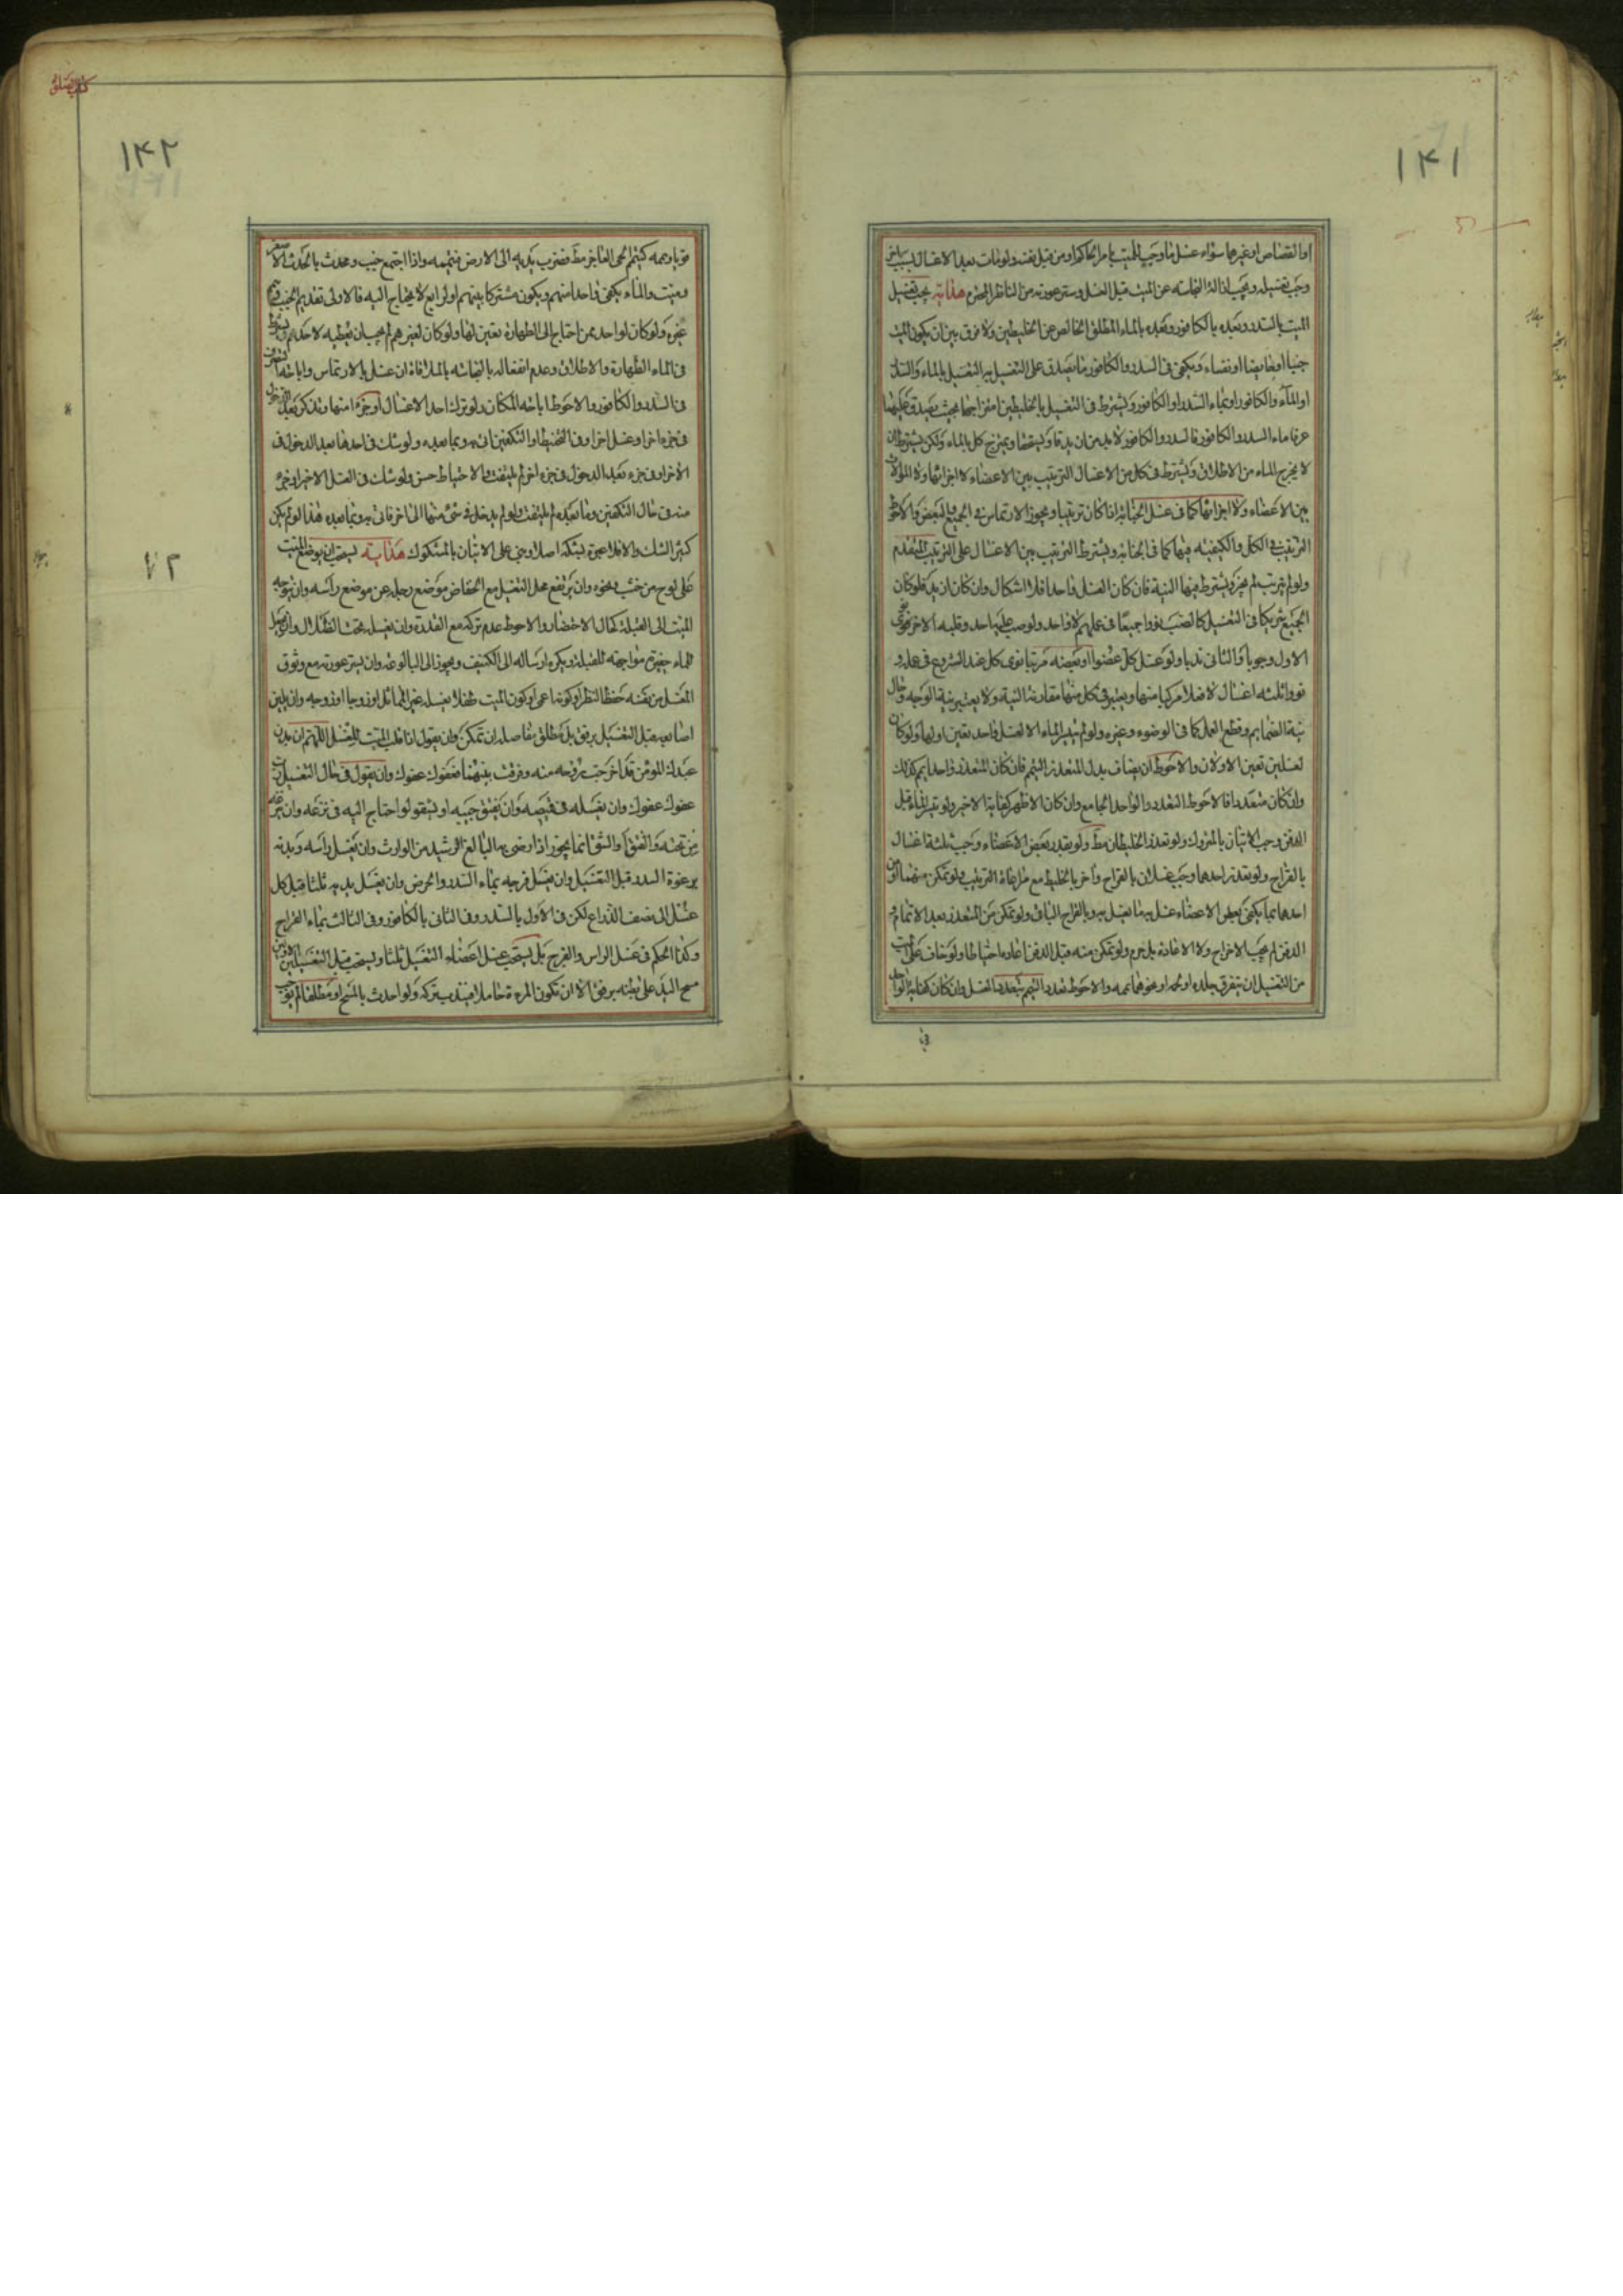 ۱۴۱
او القصاص او غيرهما سواء غسل ما وجب للميت بامر الحاكم او من قبل نفسه ولو مات بعد الاغتسال بسبب اخر
وجب تغسيله ويجب ازالة النجاسة عن الميت قبل الغسل وستر عورته من الناظر المحترم هداية يجب تغسيل
الميت بالسدر وبعده بالكافور وبعده بالماء المطلق الخالص عن الخليطين ولا فرق بين ان يكون الميت
جنبا او حايضا او نفساء ويكفى فى السدر والكافور ما يصدق على التغسيل به التغسيل بالماء والسدر
او الماء والكافور او بماء السدر او الكافور ويشترط فى التغسيل بالخليطين امتزاجهما بحيث يصدق عليهما
عرفا ماء السدر والكافور فالسدر والكافور لا بد من ان يدقا ويسحقا ويمتزج كل بالماء ولكن يشترط ان
لا يخرج الماء من الاطلاق ويشترط فى كل من الاغسال الترتيب بين الاعضاء لا اجزائها ولا الموالاة
بين الاعضاء ولا اجزائها كما فى غسل الجنابة اذا كان ترتيبا ويجوز الارتماس فى الجميع او البعض والاحوط
الترتيب فى الكل والكيفية فيهما كما فى الجنابة ويشترط الترتيب بين الاغسال على الترتيب المتقدم
ولو لم يرتب لم يجز ويشترط فيها النية فان كان الغسل واحدا فلا اشكال وان كان ازيد فلو كان
الجميع شريكا فى التغسيل كالصب نووا جميعا فى عملهم لا واحد ولو صب عليه احد وقلبه الاخر نوى
الاول وجوبا والثانى ندبا ولو غسل كل عضوا او بعضه مرتبا نوى كل عند الشروع فى عمله و
نووا ثلثه اغسال لا فعلا مركبا منها ويعتبر فى كل منها مقارنة النية ولا يعتبر نية الوجه وحال
نية الضمايم وقطع العمل كما فى الوضوء وغيره ولو لم يتيسر الماء الا لغسل واحد تعين اولها ولو كان
لغسلين تعين الاولان والاحوط ان يضاف بدل المتعذر التيمم فان كان المتعذر واحدا يمم كذلك
وان كان متعددا فالاحوط التعدد والواحد الجامع وان كان الاظهر كفاية الاخير ولو تيسر الماء قبل
الدفن وجب الاتيان بالمتروك ولو تعذر الخليطان مط ولو بقدر بعض الاعضاء وجب ثلثة اغسال
بالقراح ولو تعذر احدهما وجب غسلان بالقراح واخر بالخليط مع مراعاة الترتيب ولو تمكن منهما او من
احدهما بما يكفى بعض الاعضاء غسل به ما يغسل به وبالقراح الباقى ولو تمكن من المتعذر بعد الاتمام و
الدفن لم يجب الاخراج ولا الاعادة بل حرم ولو تمكن منه قبل الدفن اعاده احتياطا ولو خاف على الميت
من التغسيل ان يتفرق جلده او لحمه او نحوهما يممه والاحوط تعدد التيمم بتعدد الغسل وان كان كفاية الواحد
۱۴۲
كتاب الصلوة
قويا ويممه كتيمم الحى العاجز مط فضرب بيديه الى الارض فتيممه واذا اجتمع جنب ومحدث بالحدث الاصغر
وميت والماء يكفى واحدا منهم ويكون مشتركا بينهم او لرابع لا يحتاج اليه فالاولى تقديم الجنب
غيره ولو كان لواحد ممن احتاج الى الطهارة تعين لها ولو كان لغيرهم لم يجب ان يعطيه لاحدهم ويشترط
فى الماء الطهارة والاطلاق وعدم انفعاله بالنجاسة بالملاقاة ان غسل بالارتماس واباحته
فى السدر والكافور والاحوط اباحة المكان ولو ترك احد الاغسال او جزءا منها وتذكر بعد الدخول
فى جزء اخر او غسل اخر او فى التحنيط او التكفين اتى به وبما بعده ولو شك فى احدها بعد الدخول فى
الاخر او فى جزء بعد الدخول فى جزء اخر لم يلتفت والاحتياط حسن ولو شك فى الغسل الاخير او جزء
منه فى حال التكفين وما بعده لم يلتفت ولو لم يدخل فى شئ منها الى اخر فاتى به وبما بعده هذا لو لم يكن
كثير الشك والا فلا عبرة بشكه اصلا وبنى على الاتيان بالمشكوك هداية يستحب ان يوضع الميت
على لوح من خشب ونحوه وان يرتفع محل التغسيل مع انخفاض موضع رجليه عن موضع راسه وان يوجه
الميت الى القبلة كحال الاحتضار والاحوط عدم تركه مع القدرة وان يغسله تحت الظلال وان يجعل
للماء حفيرة مواجهة للقبلة ويكره ارساله الى الكنيف ويجوز الى البالوعة وان يستر عورته مع وثوق
المغسل من نفسه حفظ النظر او كونه اعمى او كون الميت طفلا يغسله غير المماثل او زوجا او زوجة وان يلين
اصابعه قبل التغسيل برفق بل مطلق مفاصله ان تمكن وان يقول اذا قلب الميت للغسل اللهم ان بدن
عبدك المؤمن قد اخرجت روحه منه وفرقت بينهما فعفوك عفوك وان يقول فى حال التغسيل رب
عفوك عفوك وان يغسله فى قميصه وان يفتق جيبه او يشقه لو احتاج اليه فى نزعه وان ينزعه
من تحته والفتق والشق انما يجوز اذا رضى به البالغ الرشيد من الوارث وان يغسل راسه وبدنه
برغوة السدر قبل التغسيل وان يغسل فرجه بماء السدر والحرض وان يغسل يديه ثلثا قبل كل
غسل الى نصف الذراع لكن فى الاول بالسدر وفى الثانى بالكافور وفى الثالث بماء القراح
وكذا الحكم فى غسل الراس والفرج بل يستحب غسل اعضاء التغسيل ثلثا ويستحب قبل التغسيلين الاولين
مسح اليد على بطنه برفق الا ان تكون المرءة حاملا فيندب تركه ولو احدث بالمسح او مطلقا لم يوجب
۷۲